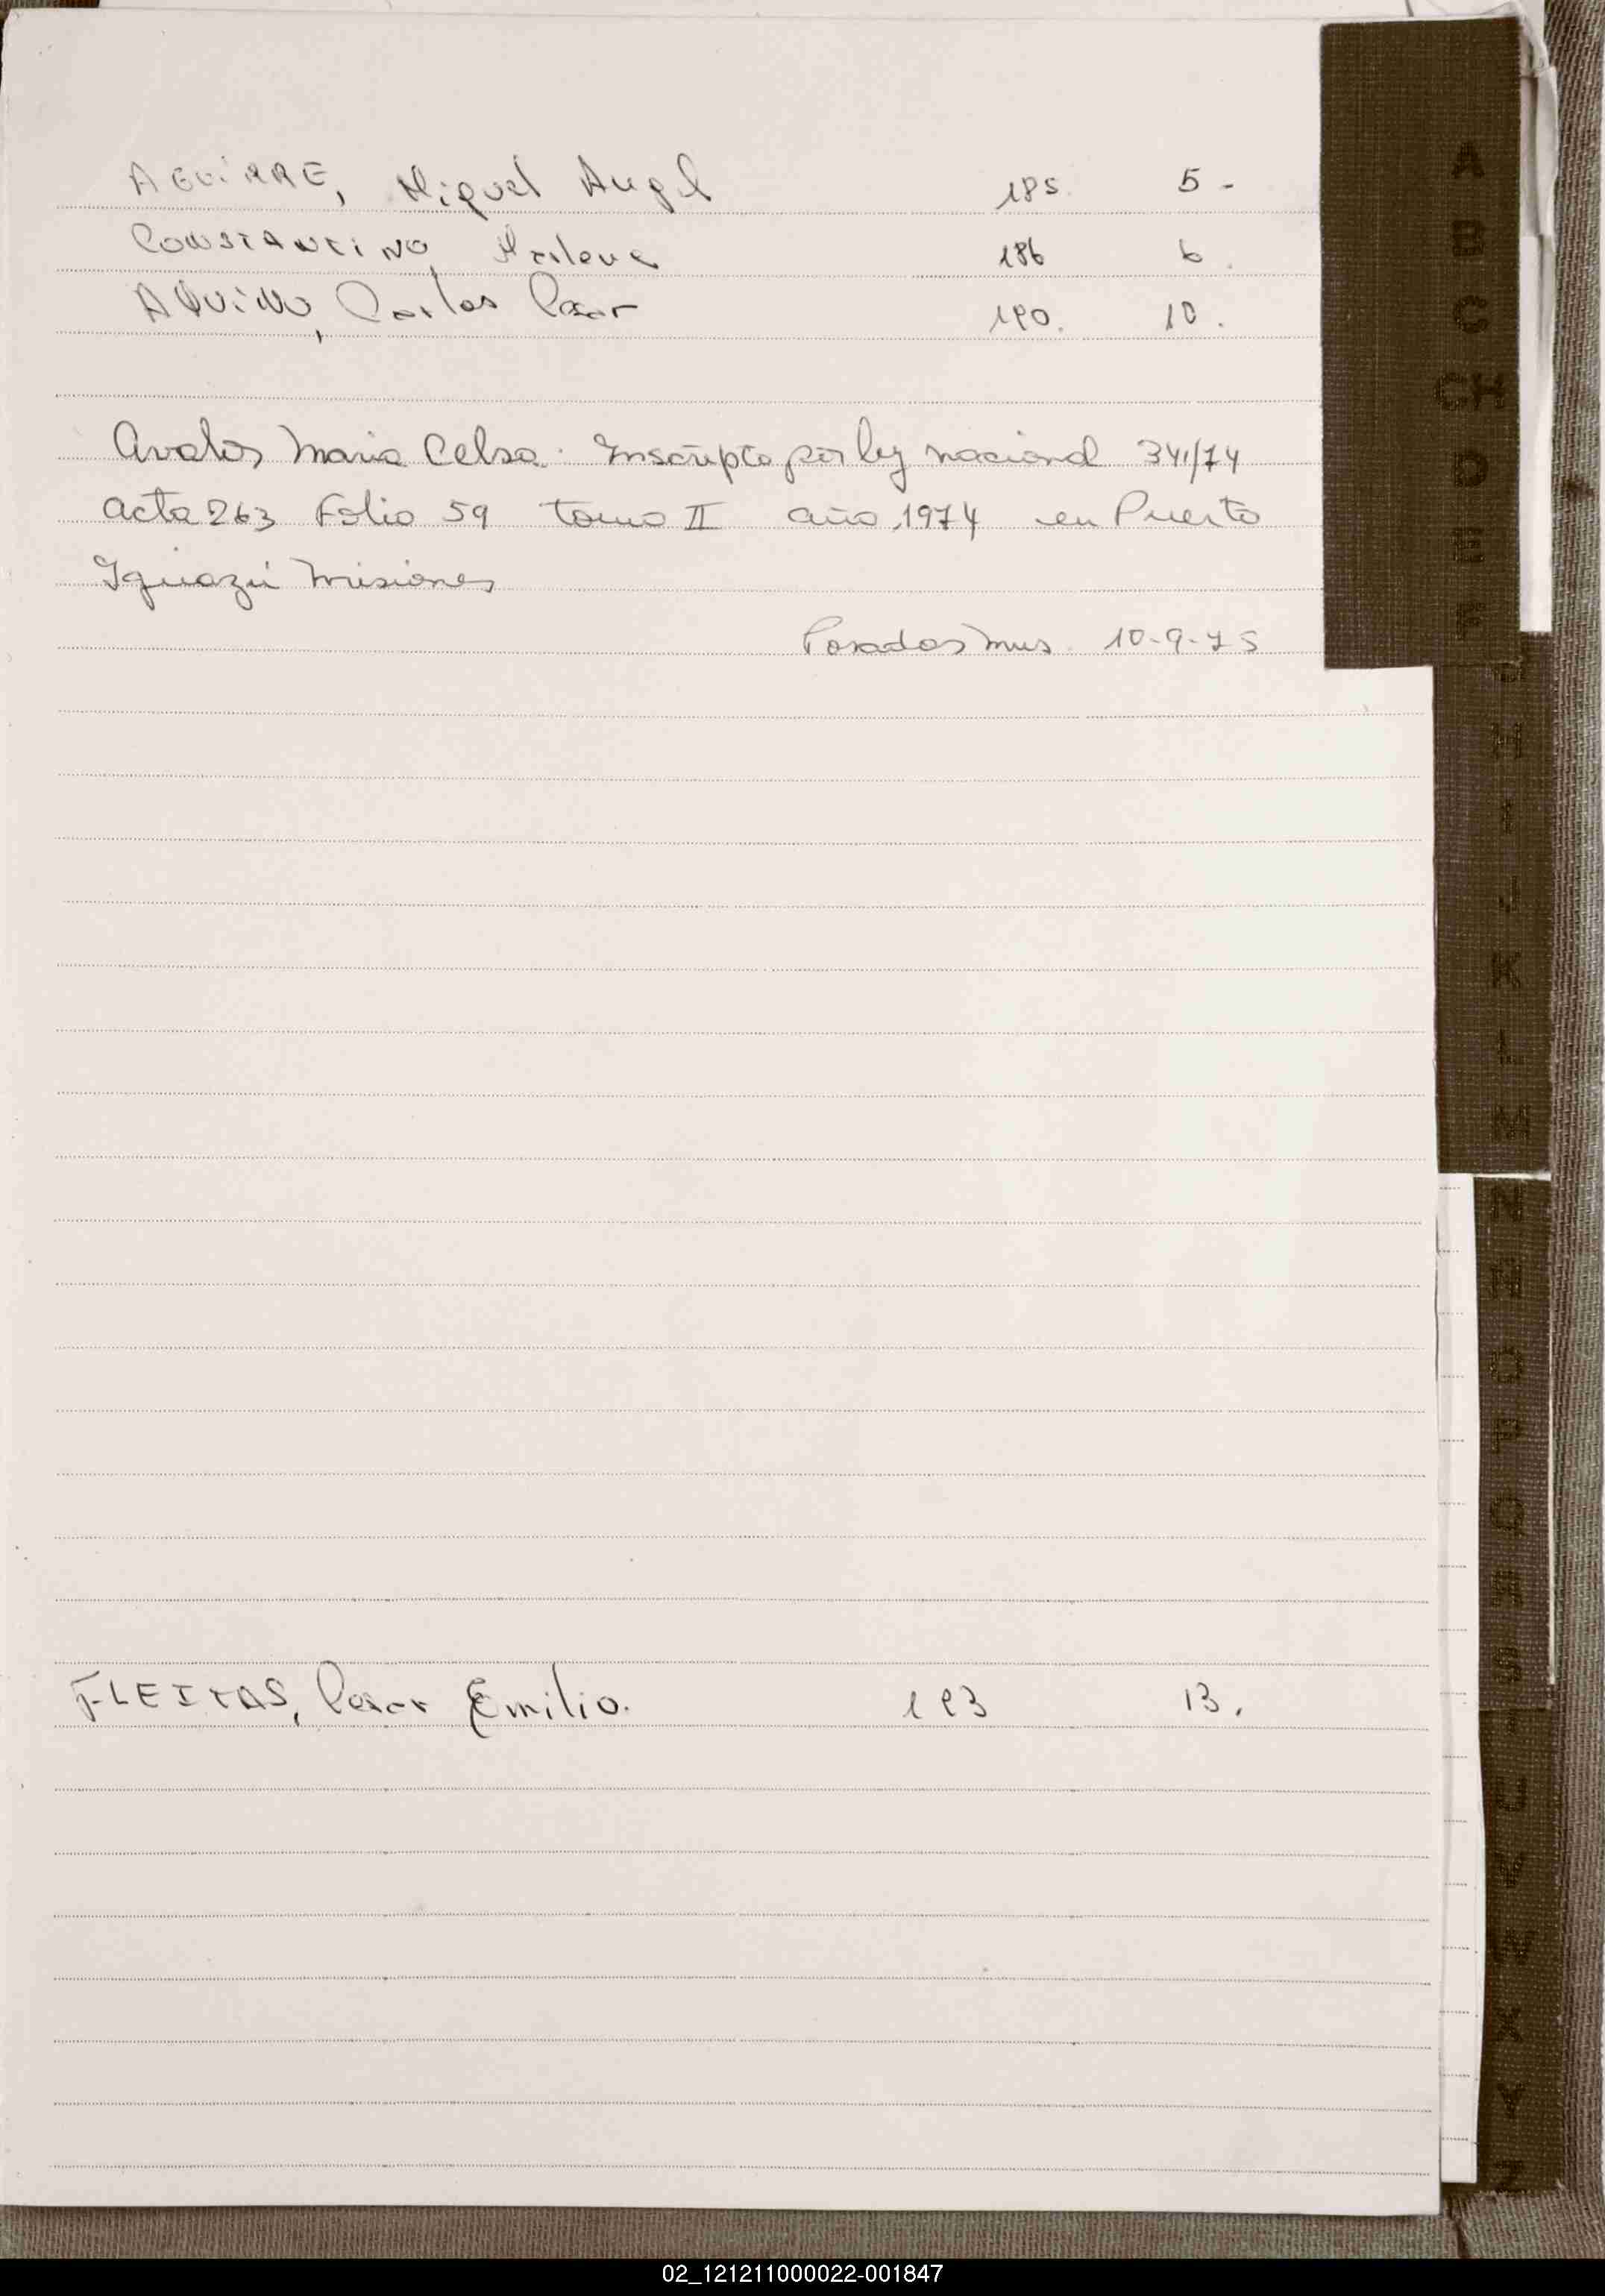 AGUIRRE, Miguel Angel 185. 5-
CONSTANTINO, Marlene 186 6.
AQUINO, Carlos Cesar 190. 10.
Avalos Maria Celsa. Inscripta por ley nacional 341/74
acta 263 Folio 59 tomo II año 1974 en Puerto
Iguazú Misiones
Posadas Mns. 10-9-75
FLEITAS, Cesar Emilio. 193 13.
A
B
C
CH
D
E
F
G
H
I
J
K
L
M
N
Ñ
O
P
Q
R
S
T
U
V
W
X
Y
Z
02_121211000022-001847